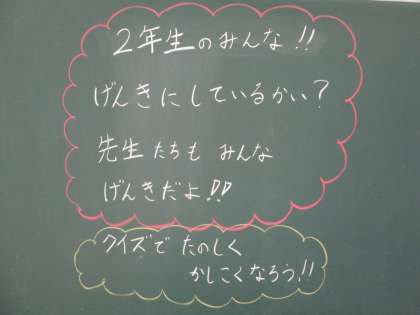 2年生のみんな!!
げんきにしているかい?
先生たちも みんな
げんきだよ!!
クイズで たのしく
かしこくなろう!!